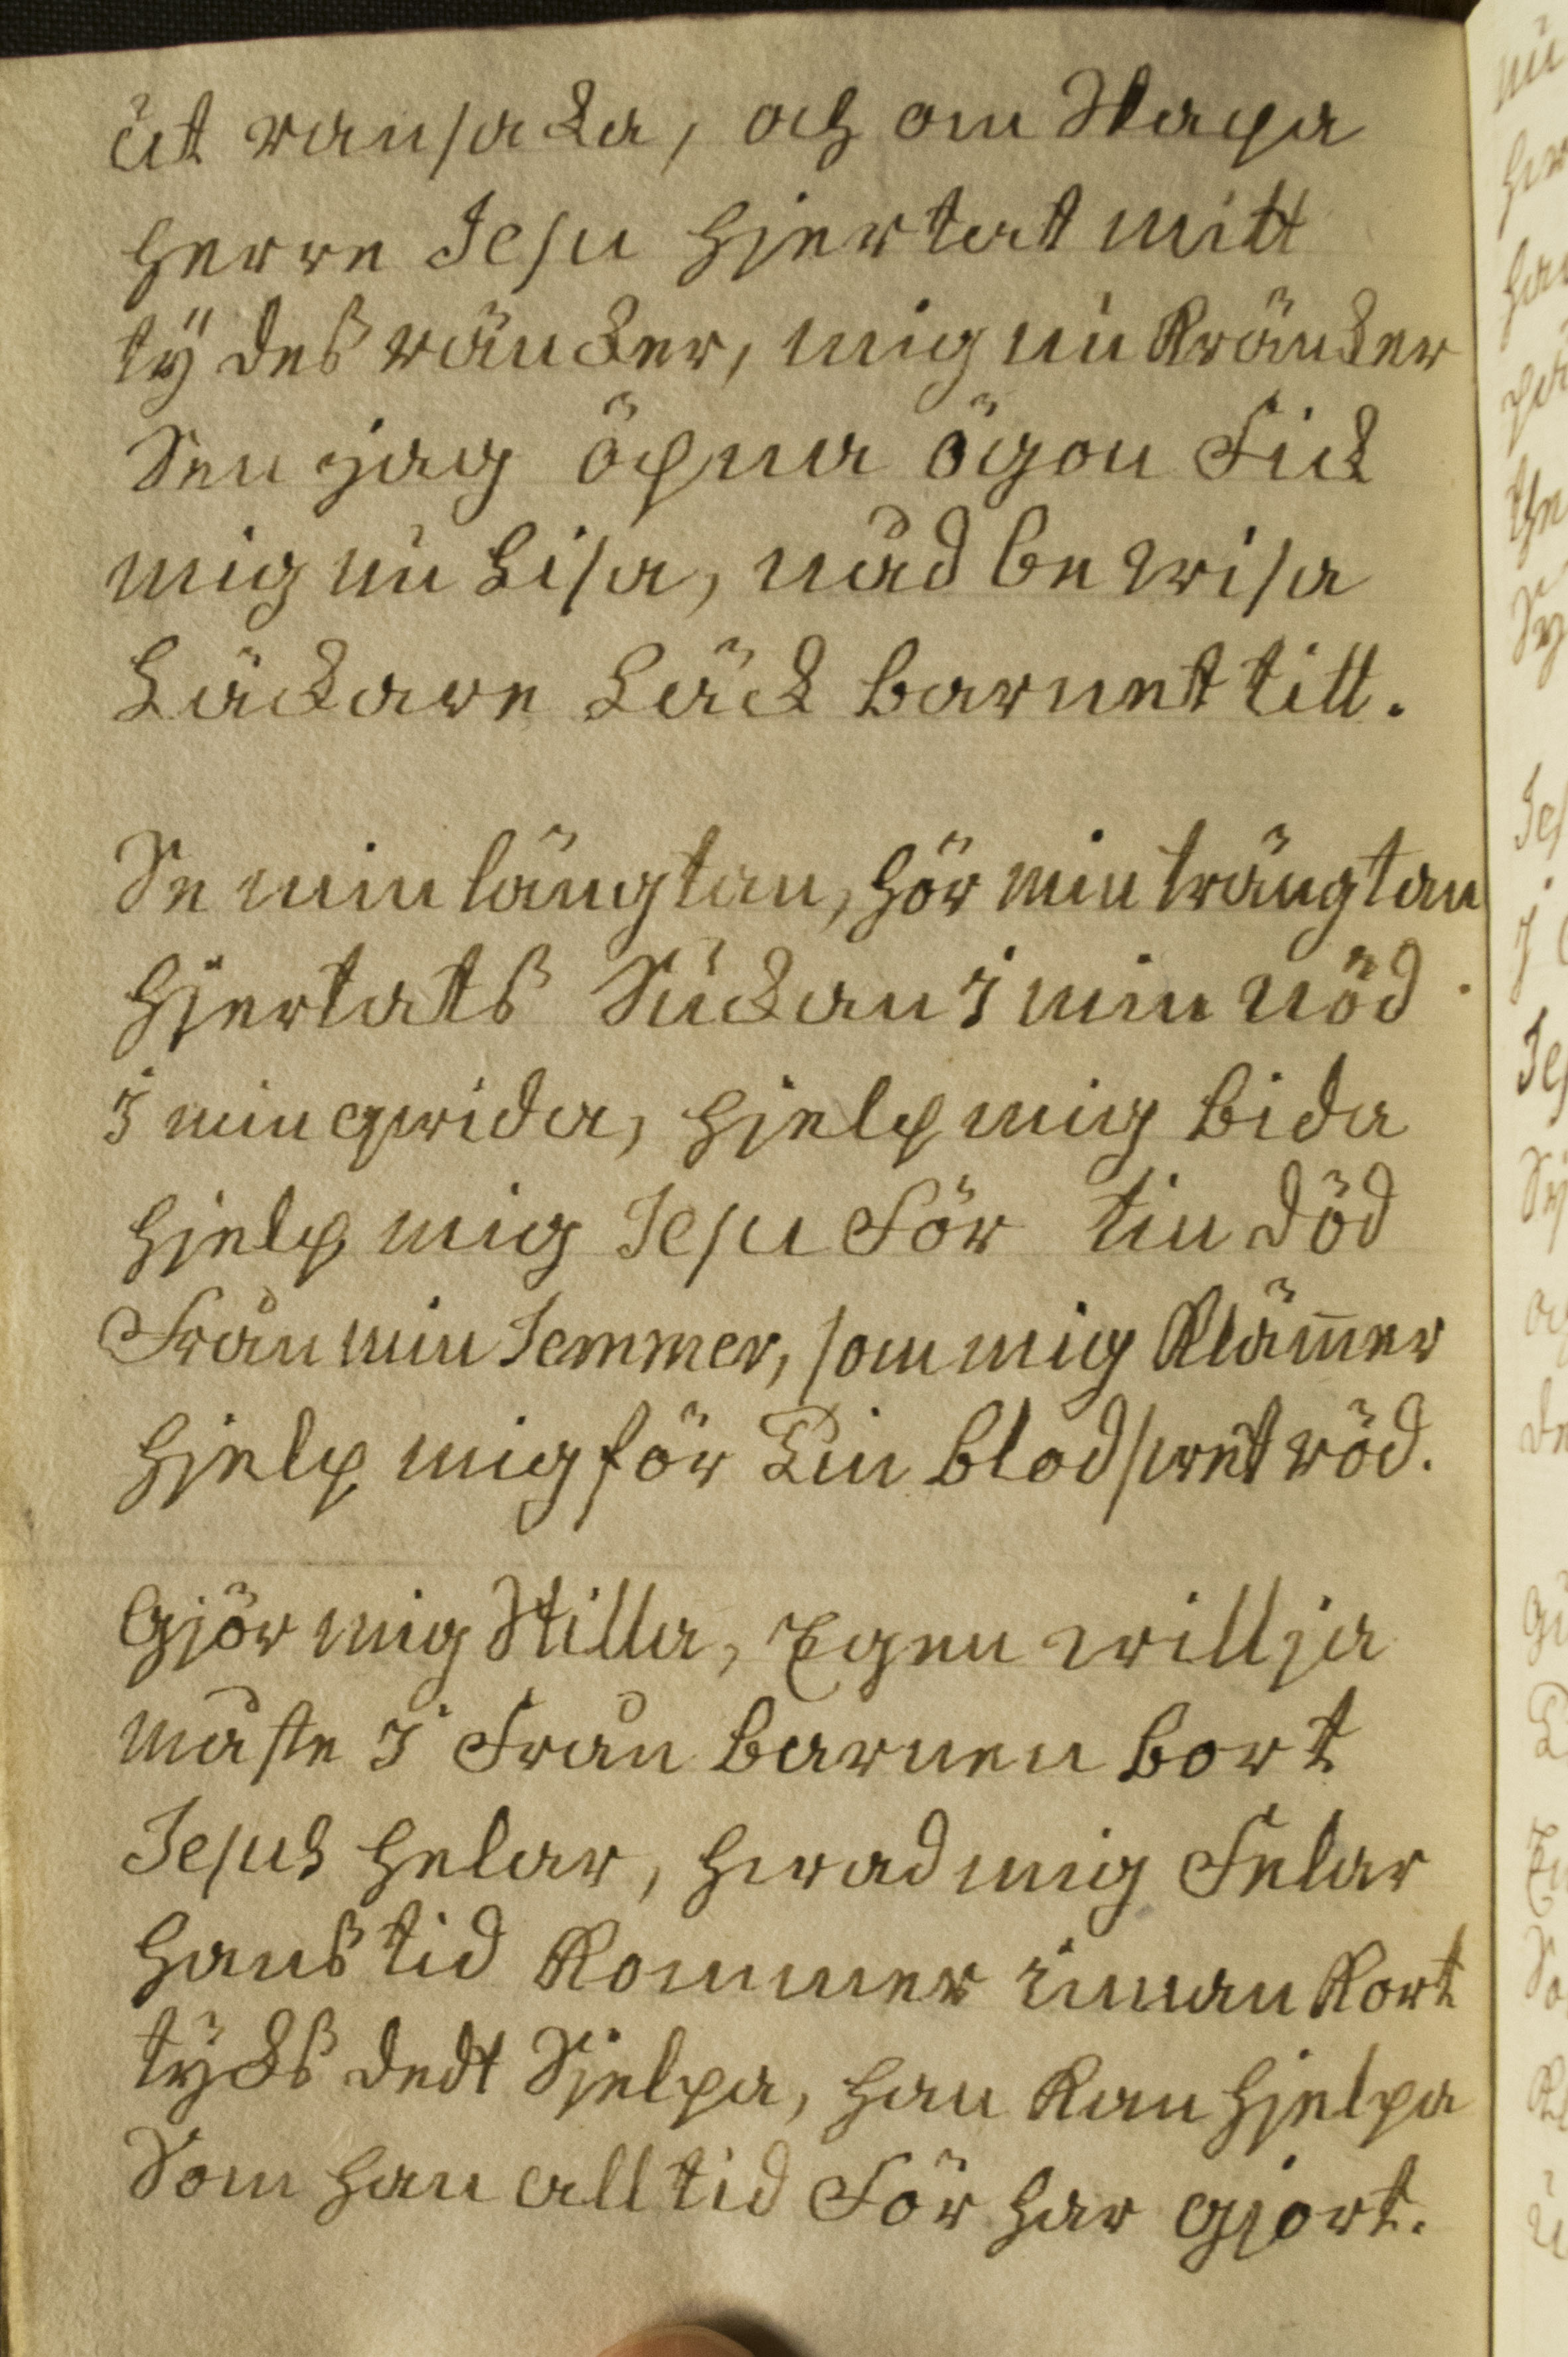 ut ransaka, och om Skapa
herre Jesu hjertat mitt
tÿ des ränker, mig nu Kränker
Sen jag öpna ögon Fick
mig nu Lisa, nåd bewisa
Läckare Läck barnet till.
Se min längtan, hör min trängtan
hjertats Suckan i min nöd
i min qwida, hjelp mig bida
hjelp mig Jesu För tin död
Från min Jemmer, som mig Klämer
hjelp mig för Din blodswet röd.
Gjör mig Stilla, Egen willja
måste i Från barnen bort
Jesus helar, hwad mig Felar
hans tid Kommer innan Kort
tycks dedt Sjelpa, han Kan hjelpa
Som han alltid För har gjort.